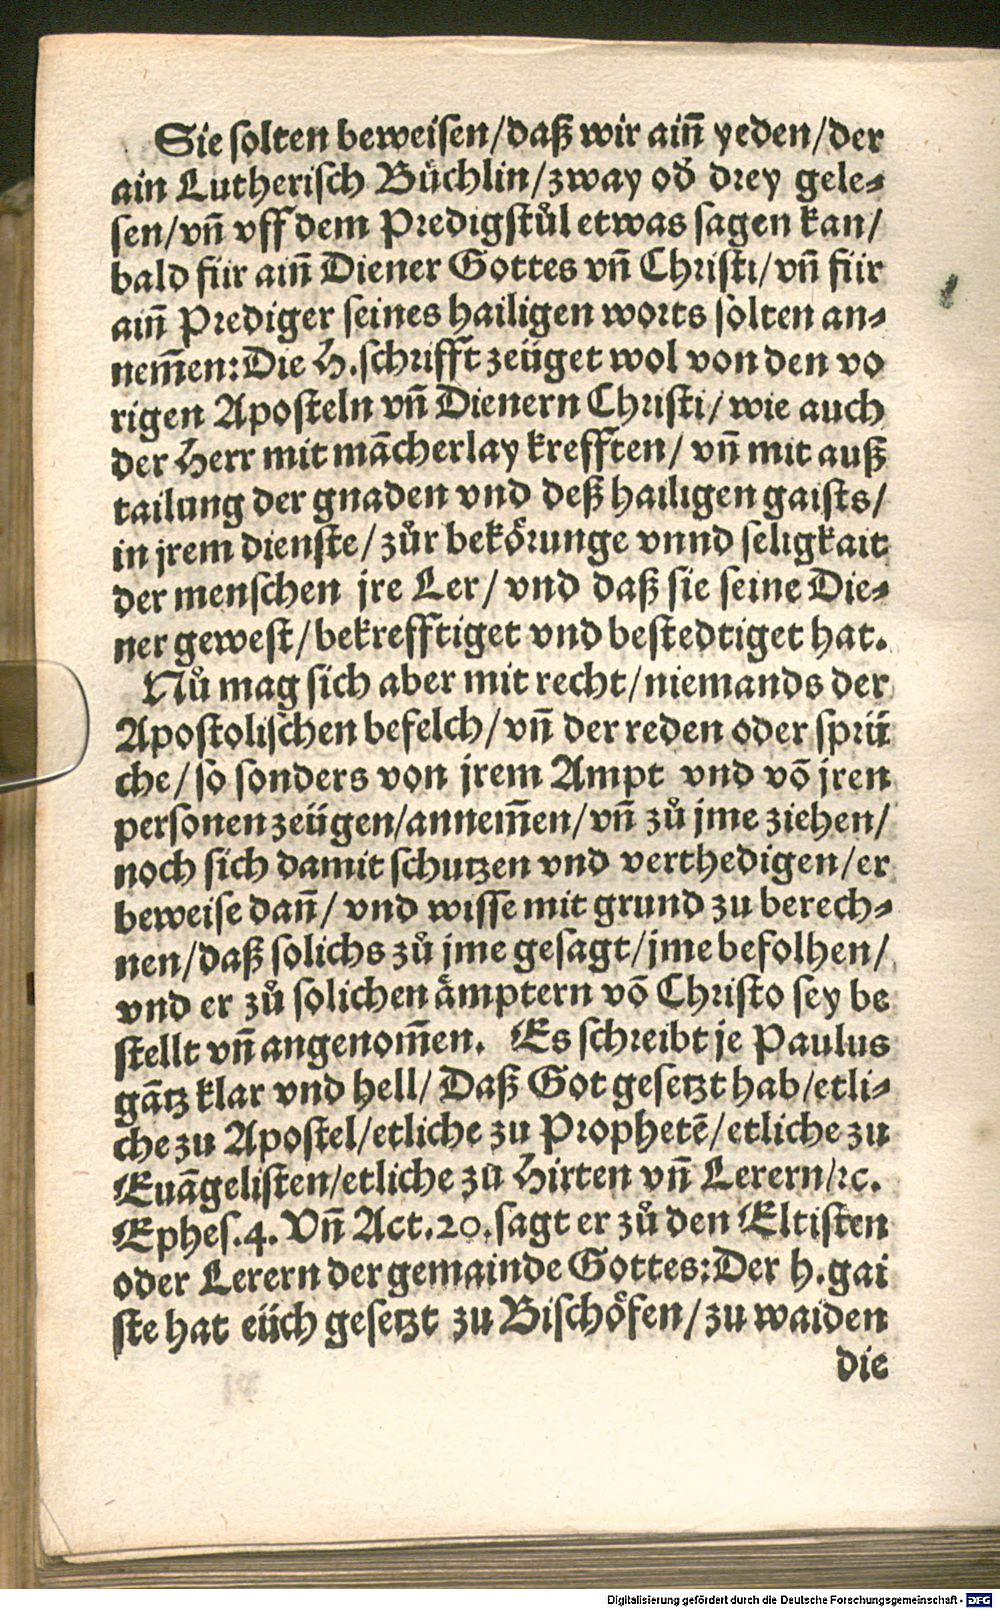 Sie solten beweisen/daß wir ainñ yeden/der
ain Lutherisch Büchlin/zway oď drey gele⸗
sen/vñ vff dem Predigstůl etwas sagen kan/
bald für aiñ Diener Gottes vñ Christi/vñ für
aiñ Prediger seines hailigen worts solten an⸗
nem̃en:Die H.schrifft zeüget wol von den vo
rigen Aposteln vñ Dienern Christi/wie auch
der Herr mit mãcherlay krefften/ vñ mit auß
tailung der gnaden vnd deß hailigen gaists/
in jrem dienste/zůr bekörunge vnnd seligkait
der menschen jre Ler/vnd daß sie seine Die⸗
ner gewest/bekrefftiget vnd bestedtiget hat.
Nů mag sich aber mit recht/niemands der
Apostolischen befelch/vñ der reden oder sprü
che/so sonders von jrem Ampt vnd võ jren
personen zeügen/annem̃en/vñ zů jme ziehen/
noch sich damit schutzen vnd verthedigen/er
beweise dañ/ vnd wisse mit grund zu berech⸗
nen/daß solichs zů jme gesagt/jme befolhen/
vnd er zů solichen ämptern võ Christo sey be
stellt vñ angenom̃en. Es schreibt je Paulus
gãtz klar vnd hell/ Daß Got gesetzt hab/etli⸗
che zu Apostel/etliche zu Prophetẽ/etliche zu
Euãgelisten/etliche zu Hirten vñ Lerern/ꝛc.
Ephes.4. Vñ Act.20.sagt er zů den Eltisten
oder Lerern der gemainde Gottes:Der h.gai
ste hat eüch gesetzt zu Bischöfen/zu waiden
die
Digitalisierung gefördert durch die Deutsche Forschungsgemeinschaft - DFG